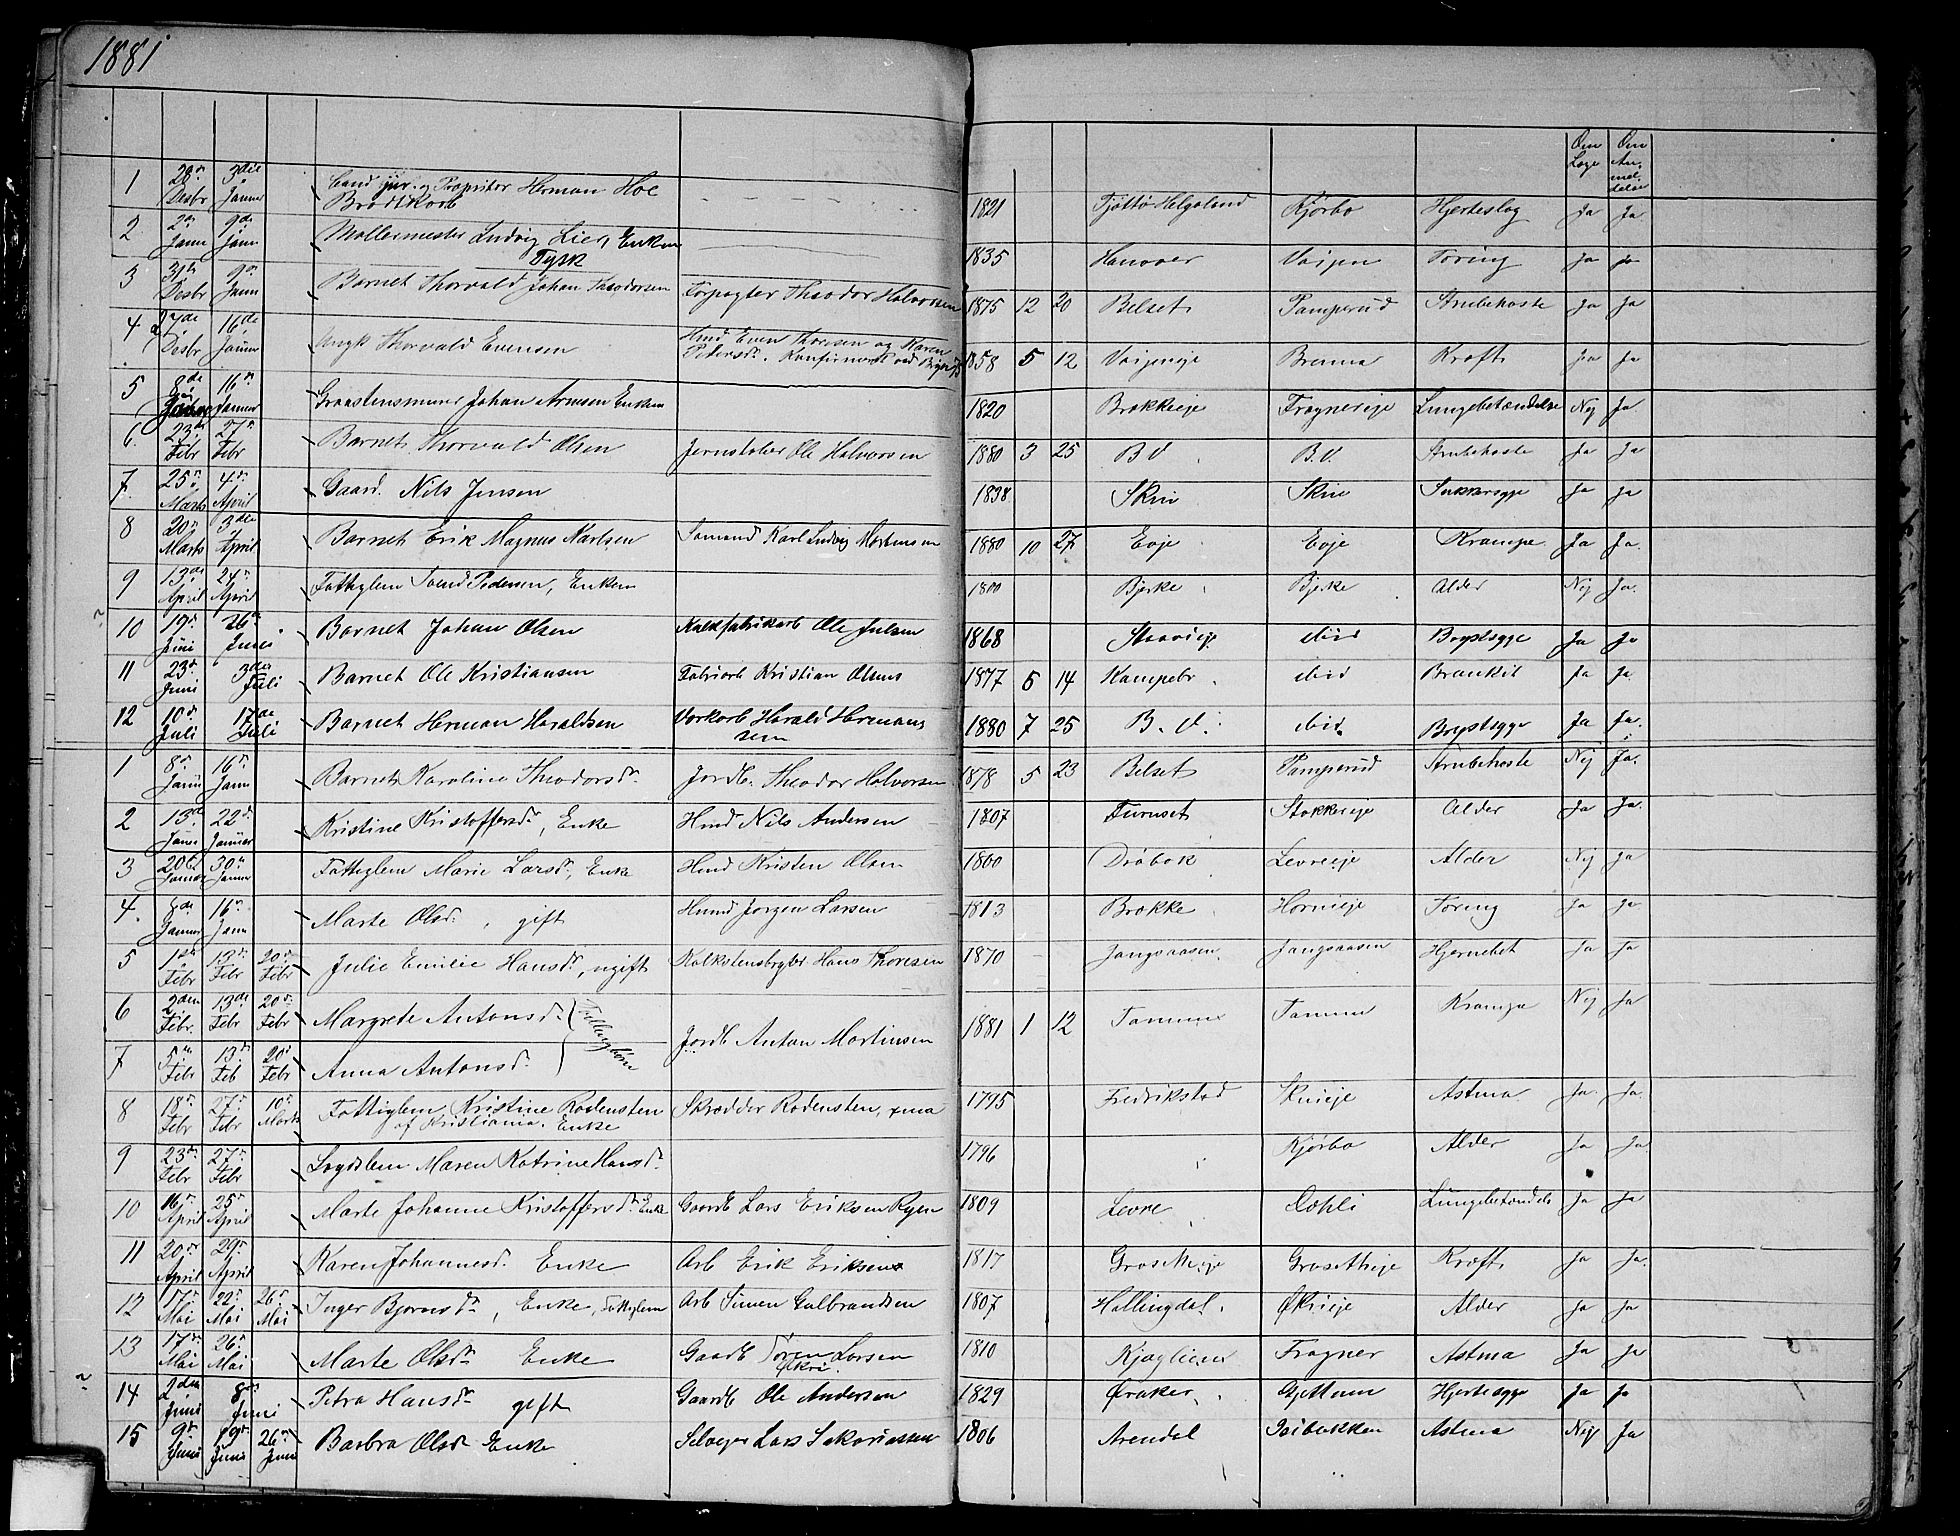 1881
Om Læge
Om Anmeldelse
1 28de Desbr 3die Januar Cand jur. og Proprietær Herman Hoe Brodtkorb 1821 Tjøttø Helgeland Kjørbo Hjerteslag Ja Ja
2 2den Janu 9de Janu Møllermester Ludvig Lier, Enkem Tysk 1835 Hanover Vøijen Tæring Ja Ja
3 31te Desbr 9de Janu Barnet Thorvald Johan Theodorsen Forpagter Theodor Halvorsen 1875 12 20 Belset Tamperud Strubehoste Ja Ja
4 27de Desbr 16de Januar Ungk Thorvald Evensen Hmd Even Thoresen og Karen Pedersd. Konfirmeret 1858 5 12 Vøijeneje Brenna Kræft Ja Ja
5 8de Januar 16de Januar Graastensmurer Johan Arnesen Enkem 1820 Brokkeeje Frogner eje Lungebetændelse Nej Ja
6 23de Febr 27de Febr Barnet Thorvald Olsen Jernstøber Ole Halvorsen 1880 3 25 B V B.V. Strubehoste Ja Ja
7 25de Marts 4de April Gaard. Nils Jensen 1838 Skui Skui Sukkersyge Ja Ja
8 20de Marts 3die April Barnet Erik Magnus Karlsen Sømand Karl Ludvig Mortensen 1880 10 27 Evje Evje Krampe Ja Ja.
9 13de April 24de April Fattiglem Svend Pedersen, Enkem 1800 Bjerke Bjerke Alder Nej Ja.
10 19de Juni 26de Juni Barnet Johan Olsen Kalkfabrikarb Ole Julsen 1868 ibid Brystsyge Ja Ja
11 23de Juni 3die Juli Barnet Ole Kristiansen Fabriarb Kristian Olsens 1877 5 14 Kampebr ibid Bronkit Ja Ja
12 10de Juli 17de Juli Barnet Herman Haraldsen Værkarb Harald Hermansen 1880 7 25 B. V. ibid. Brystsyge Ja Ja.
1 8de Janu 16de Janu Barnet Karoline Theodorsdr. Jordb. Theodor Halvorsen 1878 5 23 Belset Tamperud Strubehoste Nej Ja.
2 13de Janu 22de Januar Kristine Kristoffersdr., Enke Hmd Nils Andersen 1807 Furuset Stokkereje Alder Ja Ja.
3 20de Januar 30de Januar Fattiglem Marie Larsdr, Enke Hmd Kristen Olsen 1800 Drøbak Levre eje Alder Nej Ja
4. 8de Januar 16de Janu Marte Olsdr., gift Hmd Jørgen Larsen 1813 Brokke Horni eje Tæring Ja Ja
5 1ste Febr 13de Febr 20de Febr Julie Emilie Hansdr, ugift Kalkstensbryder Hans Thoresen 1870 Jongsaasen Jongsaasen Hjernebet Ja Ja
6 2den Febr. 13de Febr 20de Febr Margrete Antonsdr Tvillingbørn Jordb Anton Martinsen 1881 1 12 Tanum Tanum Krampe Nej Ja
7 5te Febr 13de Feb 20de Febr Anna Antonsdr.
8 18de Febr 27de Febr 10de Marts Fattiglem Kristine Rodensten af Kristiania. Enke Skrædder Rodensten, xnia 1795 Fredrikstad Skui eje Astma Ja. Ja.
9 23de Febr 27de Febr Lægdslem Maren Katrine Hansdr. 1796 Kjørbo Alder Ja Ja.
10 16de April 25de April Marte Johanne Kristoffersdr Enke Gaardb Lars Eriksen Ryen 1809 Levre Dæhli Lungebetændels Ja Ja
11 20de April 29de April Karen Johannesdr. Enke Arb Erik Eriksen 1817 Groset eje Groset eje Kræft Ja Ja.
12 17de Mai 22de Mai 26de Mai Inger Bjørnsdr, Enke, Fattiglem Arb Simen Gulbrandsen 1807 Hallingdal. Økri eje Alder Ja Ja
13 17de Mai 26de Mai Marte Olsdr Enke Gaardb Søren Larsen Økri 1810 Kjaglien Frogner Astma Ja Ja
14 2den Juni 8de Juni Petra Hansdr gift Gaardb Ole Andersen 1829 Øraker Gjettum Hjertesyge Ja Ja
15 9de Juni 19de Juni 26de Juni Barbra Olsdr Enke Selveger Lars Sakariassen 1806 Arendal Astma Nej Ja